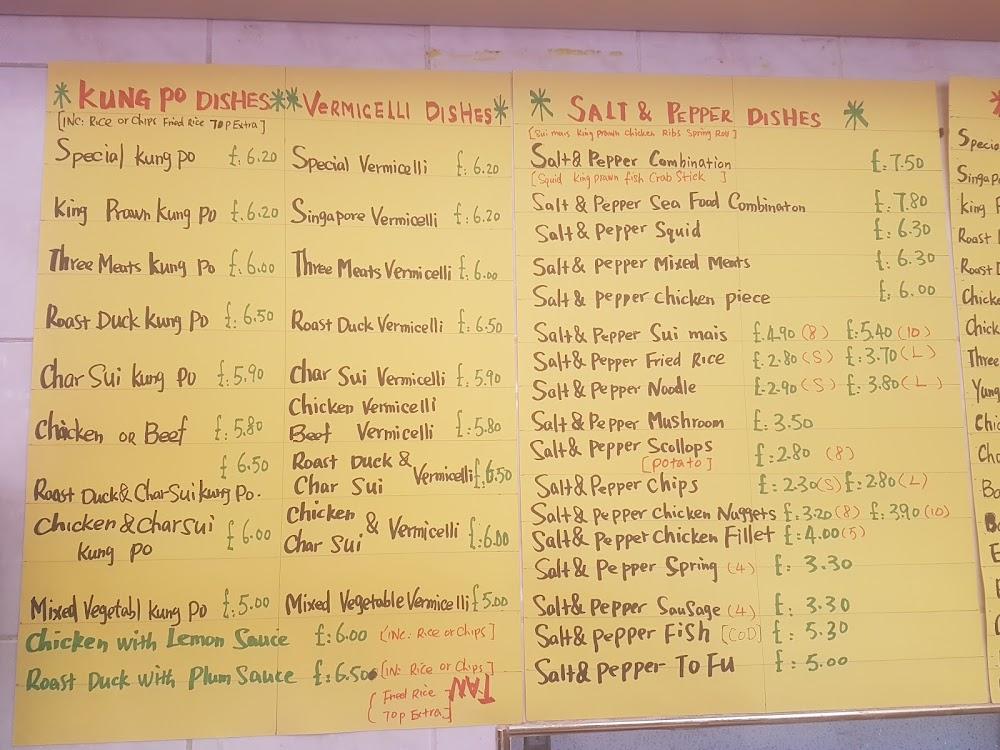 KUNG PO DISHES
[INC: Rice or Chips Fried Rice 70p Extra]
Special kung po £: 6.20
King Prawn Kung Po £: 6.20
Three Meats kung Po £: 6.00
Roast Duck kung Po £: 6.50
Char Sui kung Po £: 5.90
Chicken OR Beef £: 5.80
£ 6.50
Roast Duck & Char Sui kung Po.
Chicken & Char Sui £ 6.00
kung Po
Mixed Vegetabl kung Po £: 5.00
Chicken with Lemon Sauce £: 6.00 [INC: Rice or Chips]
Roast Duck with Plum Sauce £: 6.50 [IN: Rice or Chips]
[Fried Rice
70p Extra]
TAN
VERMICELLI DISHES
Special Vermicelli £: 6.20
Singapore Vermicelli £: 6.20
Three Meats Vermicelli £: 6.00
Roast Duck Vermicelli £: 6.50
Char Sui Vermicelli £: 5.90
Chicken Vermicelli
Beef Vermicelli £: 5.80
Roast Duck &
Char Sui Vermicelli £: 6.50
Chicken
Char Sui & Vermicelli £: 6.00
Mixed Vegetable Vermicelli £ 5.00
SALT & PEPPER DISHES
[Sui mais King prawn Chicken Ribs Spring Roll]
Salt & Pepper Combination £: 7.50
[Squid King prawn fish Crab Stick ]
Salt & Pepper Sea Food Combinaton £: 7.80
Salt & Pepper Squid £: 6.30
Salt & Pepper Mixed Meats £: 6.30
Salt & pepper chicken piece £: 6.00
Salt & Pepper Sui mais £.4.90 (8) £: 5.40 (10)
Salt & Pepper Fried Rice £.2.80 (S) £: 3.70 (L)
Salt & Pepper Noodle £.2.90 (S) £: 3.80 (L)
Salt & Pepper Mushroom £: 3.50
Salt & Pepper Scollops £: 2.80 (8)
[potato]
Salt & Pepper Chips £: 2.30 (S) £: 2.80 (L)
Salt & Pepper Chicken Nuggets £: 3.20 (8) £: 3.90 (10)
Salt & Pepper Chicken Fillet £: 4.00 (5)
Salt & Pepper Spring (4) £: 3.30
Salt & Pepper Sausage (4) £: 3.30
Salt & pepper Fish [COD] £: 5.30
Salt & Pepper To Fu £: 5.00
Specia
Singapo
King P
Roast
Roast D
Chicke
Chick
Three
Yung
Chic
Cha